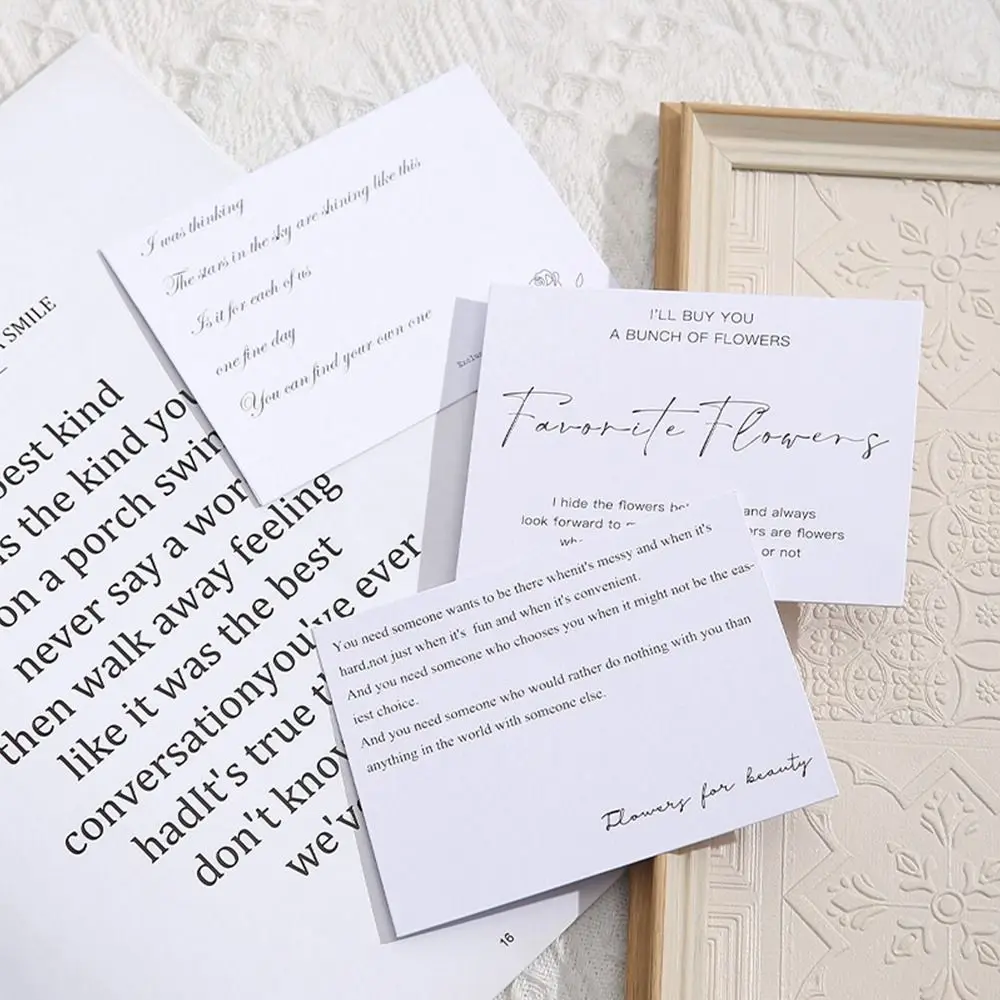 SMILE
best kind
is the kind you
on a porch swin
never say a wor
then walk away feeling
like it was the best
conversationyou've ever
hadIt's true
don't know
we've
16
I was thinking
The stars in the sky are shining like this
Is it for each of us
one fine day
You can find your own one
I'LL BUY YOU
A BUNCH OF FLOWERS
Favorite Flowers
I hide the flowers and always
look forward to are flowers
or not
You need someone wants to be there whenit's messy and when it's
hard,not just when it's fun and when it's convenient.
And you need someone who chooses you when it might not be the eas-
iest choice.
And you need someone who would rather do nothing with you than
anything in the world with someone else.
Flowers for beauty